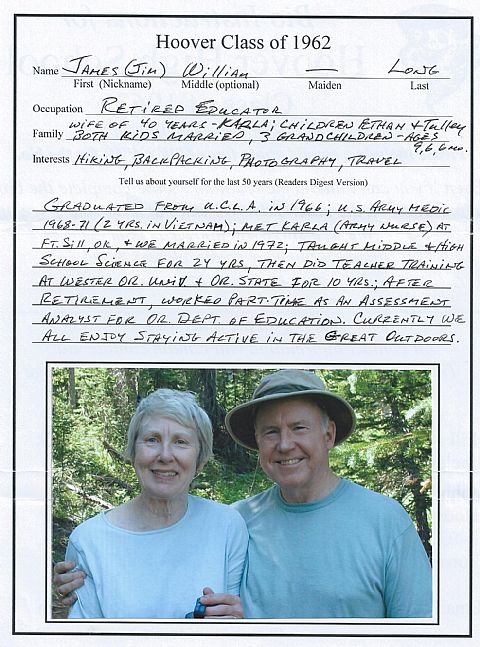 Hoover Class of 1962
Name JAMES (JIM) William — LONG
First (Nickname) Middle (optional) Maiden Last
Occupation RETIRED EDUCATOR
WIFE OF 40 YEARS - KARLA; CHILDREN ETHAN & Tulley
Family BOTH KIDS MARRIED, 3 GRANDCHILDREN - AGES
9, 6, 6 mo.
Interests HIKING, BACKPACKING, PHOTOGRAPHY, TRAVEL
Tell us about yourself for the last 50 years (Readers Digest Version)
GRADUATED FROM U.C.L.A. IN 1966; U.S. ARMY MEDIC
1968-71 (2 YRS. IN VIETNAM); MET KARLA (ARMY NURSE) AT
FT. SILL, OK, & WE MARRIED IN 1972; TAUGHT MIDDLE & HIGH
SCHOOL SCIENCE FOR 24 YRS, THEN DID TEACHER TRAINING
AT WESTER OR. UNIV & OR. STATE FOR 10 YRS.; AFTER
RETIREMENT, WORKED PART-TIME AS AN ASSESSMENT
ANALYST FOR OR. DEPT. OF EDUCATION. CURRENTLY WE
ALL ENJOY STAYING ACTIVE IN THE GREAT OUTDOORS.